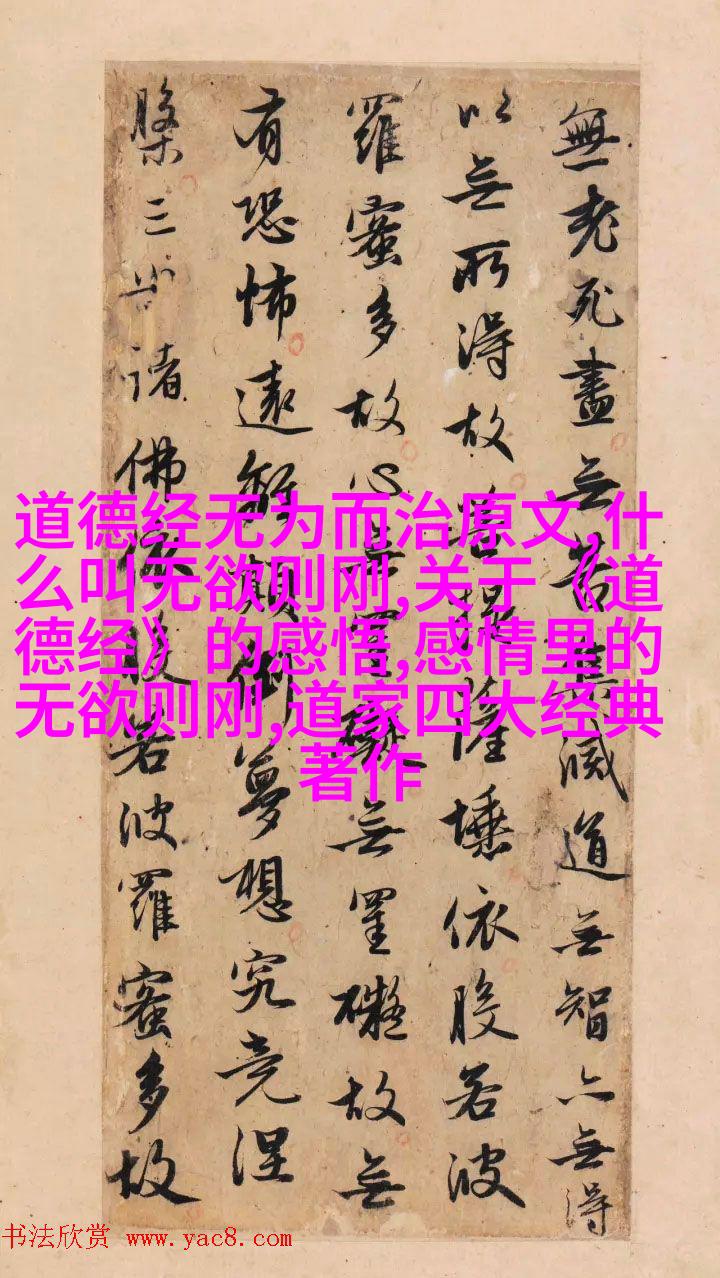 無老死盡无苦集滅道无智亦無得
以无所得故菩提薩埵依般若波
羅蜜多故心无罣礙无罣礙故無
有恐怖遠離顛倒夢想究竟涅
槃三世諸佛依般若波羅蜜多故
道德经无为而治原文,什
么叫无欲则刚,关于《道
德经》的感悟,感情里的
无欲则刚,道家四大经典
著作
书法欣赏 www.yac8.com